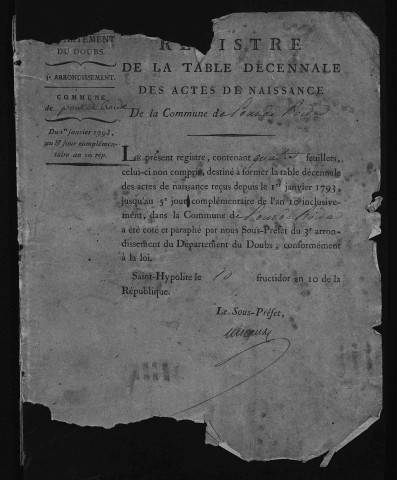 DÉPARTEMENT
DU DOUBS.
3e ARRONDISSEMENT.
COMMUNE
de
Du 1er janvier 1793,
au 5e jour complémen-
taire an 10 rép.
REGISTRE
DE LA TABLE DÉCENNALE
DES ACTES DE NAISSANCE
De la Commune de
LE présent registre, contenant quatre feuillets,
celui-ci non compris, destiné à former la table décennale
des actes de naissance reçus depuis le 1er janvier 1793,
jusqu'au 5e jour complémentaire de l'an 10e inclusive-
ment, dans la Commune de
a été coté et paraphé par nous Sous-Préfet du 3e arron-
dissement du Département du Doubs, conformément
à la loi.
Saint-Hypolite le 10 fructidor an 10 de la
République.
Le Sous-Préfet,